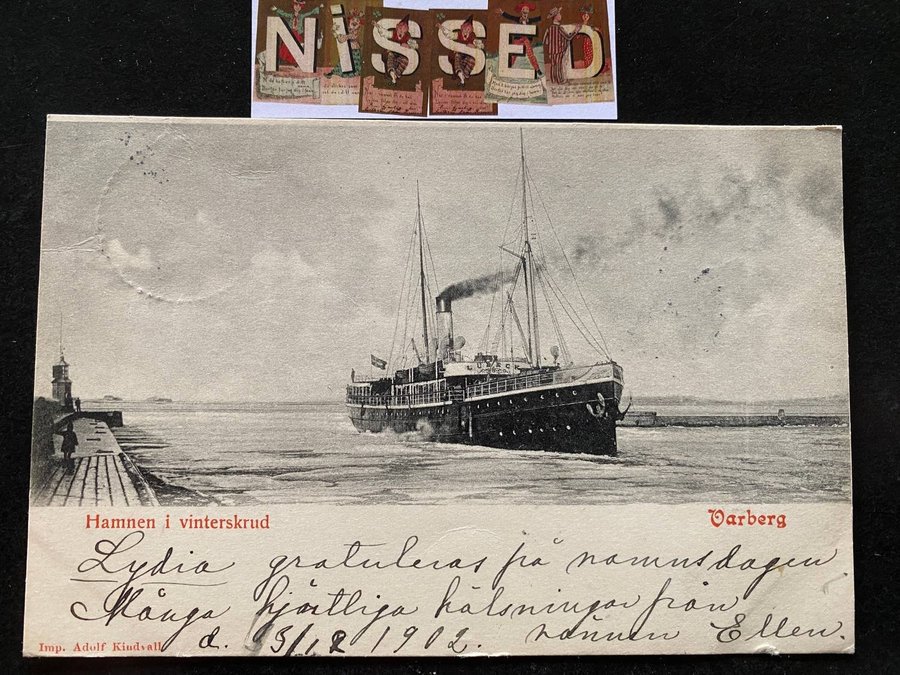 NiSSED
Hamnen i vinterskrud
Varberg
Lydia gratuleras på namnsdagen
Många hjärtliga hälsningar från
d. 1902. vännen Ellen.
Imp. Adolf Kindvall